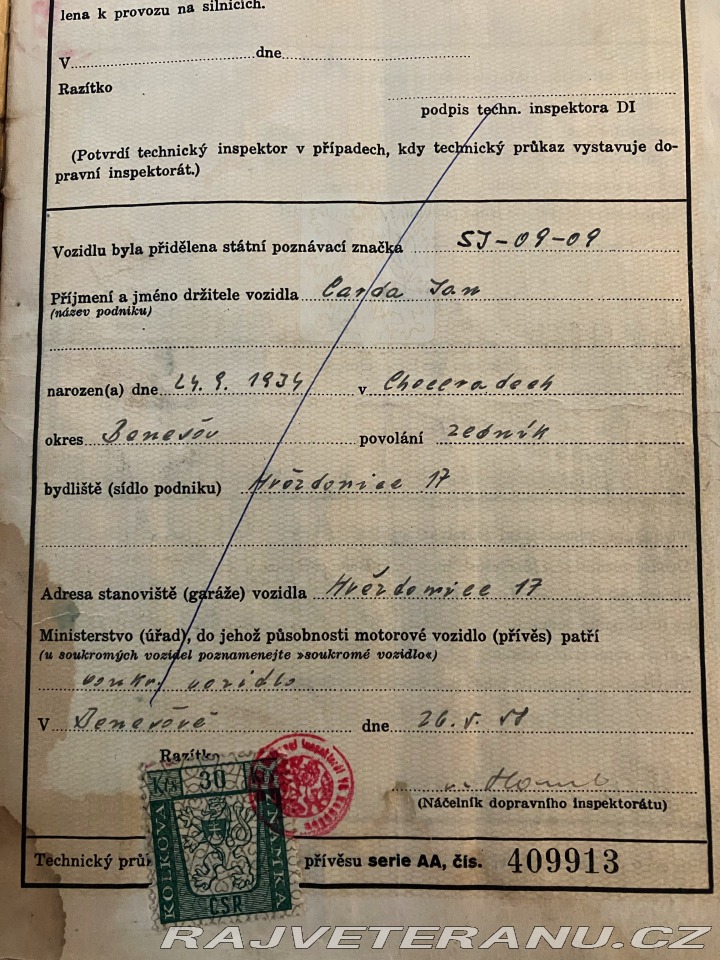 lena k provozu na silnicích.
V............dne............
Razítko
podpis techn. inspektora DI
(Potvrdí technický inspektor v případech, kdy technický průkaz vystavuje do-
pravní inspektorát.)
Vozidlu byla přidělena státní poznávací značka SJ-09-09
Příjmení a jméno držitele vozidla Čarda Jan
(název podniku)
narozen(a) dne 24. 9. 1934 v Choceradech
okres Benešov povolání zedník
bydliště (sídlo podniku) Hvězdonice 17
Adresa stanoviště (garáže) vozidla Hvězdonice 17
Ministerstvo (úřad), do jehož působnosti motorové vozidlo (přívěs) patří
(u soukromých vozidel poznamenejte »soukromé vozidlo«)
soukr. vozidlo
V Benešově dne 26. 5. 58
Razítko
(Náčelník dopravního inspektorátu)
Kčs 30
KOLKOVÁ ZNÁMKA
ČSR
Technický průk přívěsu serie AA, čís. 409913
RAJVETERANU.CZ